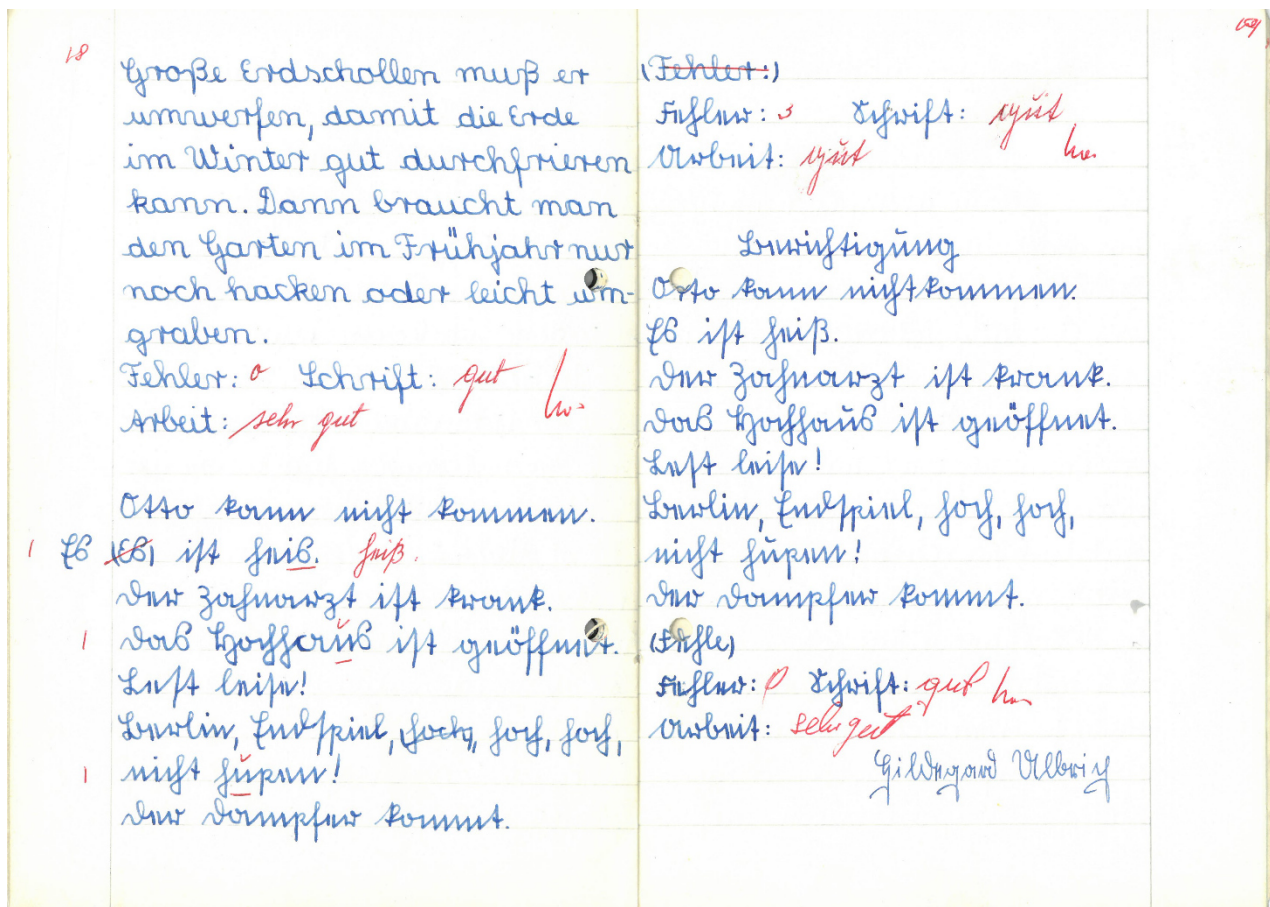 18
Große Erdschollen muß er
umwerfen, damit die Erde
im Winter gut durchfrieren
kann. Dann braucht man
den Garten im Frühjahr nur
noch hacken oder leicht um-
graben.
Fehler: 0 Schrift: gut
Arbeit: sehr gut
Otto kann nicht kommen.
1 Es (Es) ist heis. heiß.
Der Zahnarzt ist krank.
1 Das Hochhaus ist geöffnet.
Lest leise!
Berlin, Endspiel, (hoch), hoch, hoch,
1 nicht hupen!
Der Dampfer kommt.
(Fehler:)
Fehler: 3 Schrift: gut
Arbeit: gut
Berichtigung
Otto kann nicht kommen.
Es ist heiß.
Der Zahnarzt ist krank.
Das Hochhaus ist geöffnet.
Lest leise!
Berlin, Endspiel, hoch, hoch,
nicht hupen!
Der Dampfer kommt.
(Fehle)
Fehler: 0 Schrift: gut
Arbeit: sehr gut
Hildegard Ulbrich